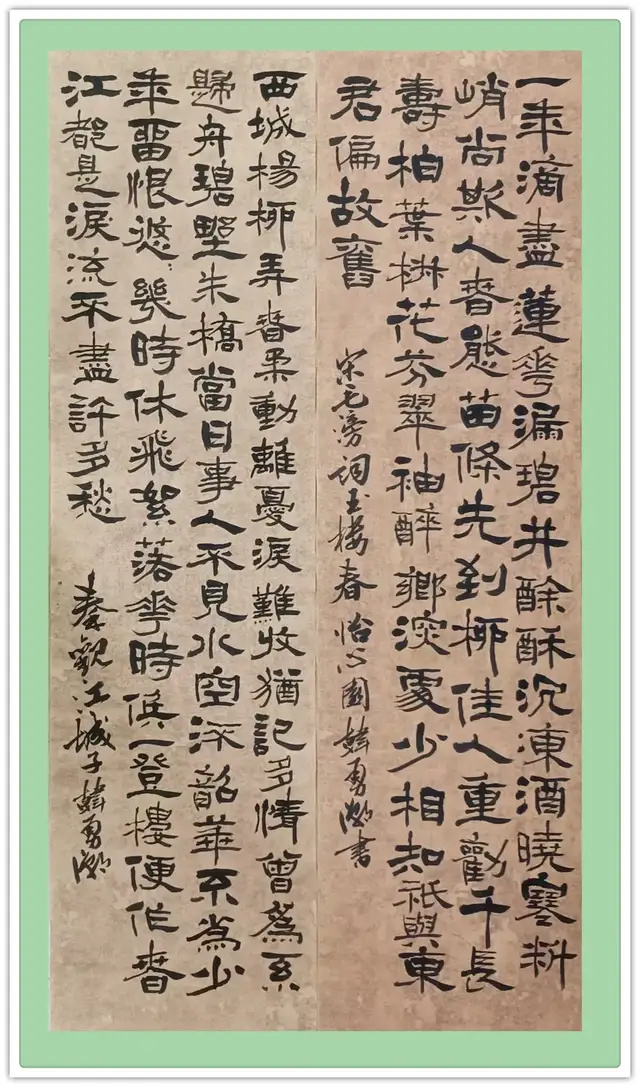 一年滴盡蓮華漏碧井酴酥沉凍酒曉寒料
峭尚欺人春態苗條先到柳佳人重勸千長
壽柏葉椒花芬翠袖醉鄉深處少相知祇與東
君偏故舊
宋毛滂詞玉樓春怡心園韓勇書
西城楊柳弄春柔動離憂淚難收猶記多情曾爲系
歸舟碧野朱橋當日事人不見水空流韶華不爲少
年留恨悠：幾時休飛絮落華時候一登樓便作春
江都是淚流不盡許多愁
秦觀江城子韓勇